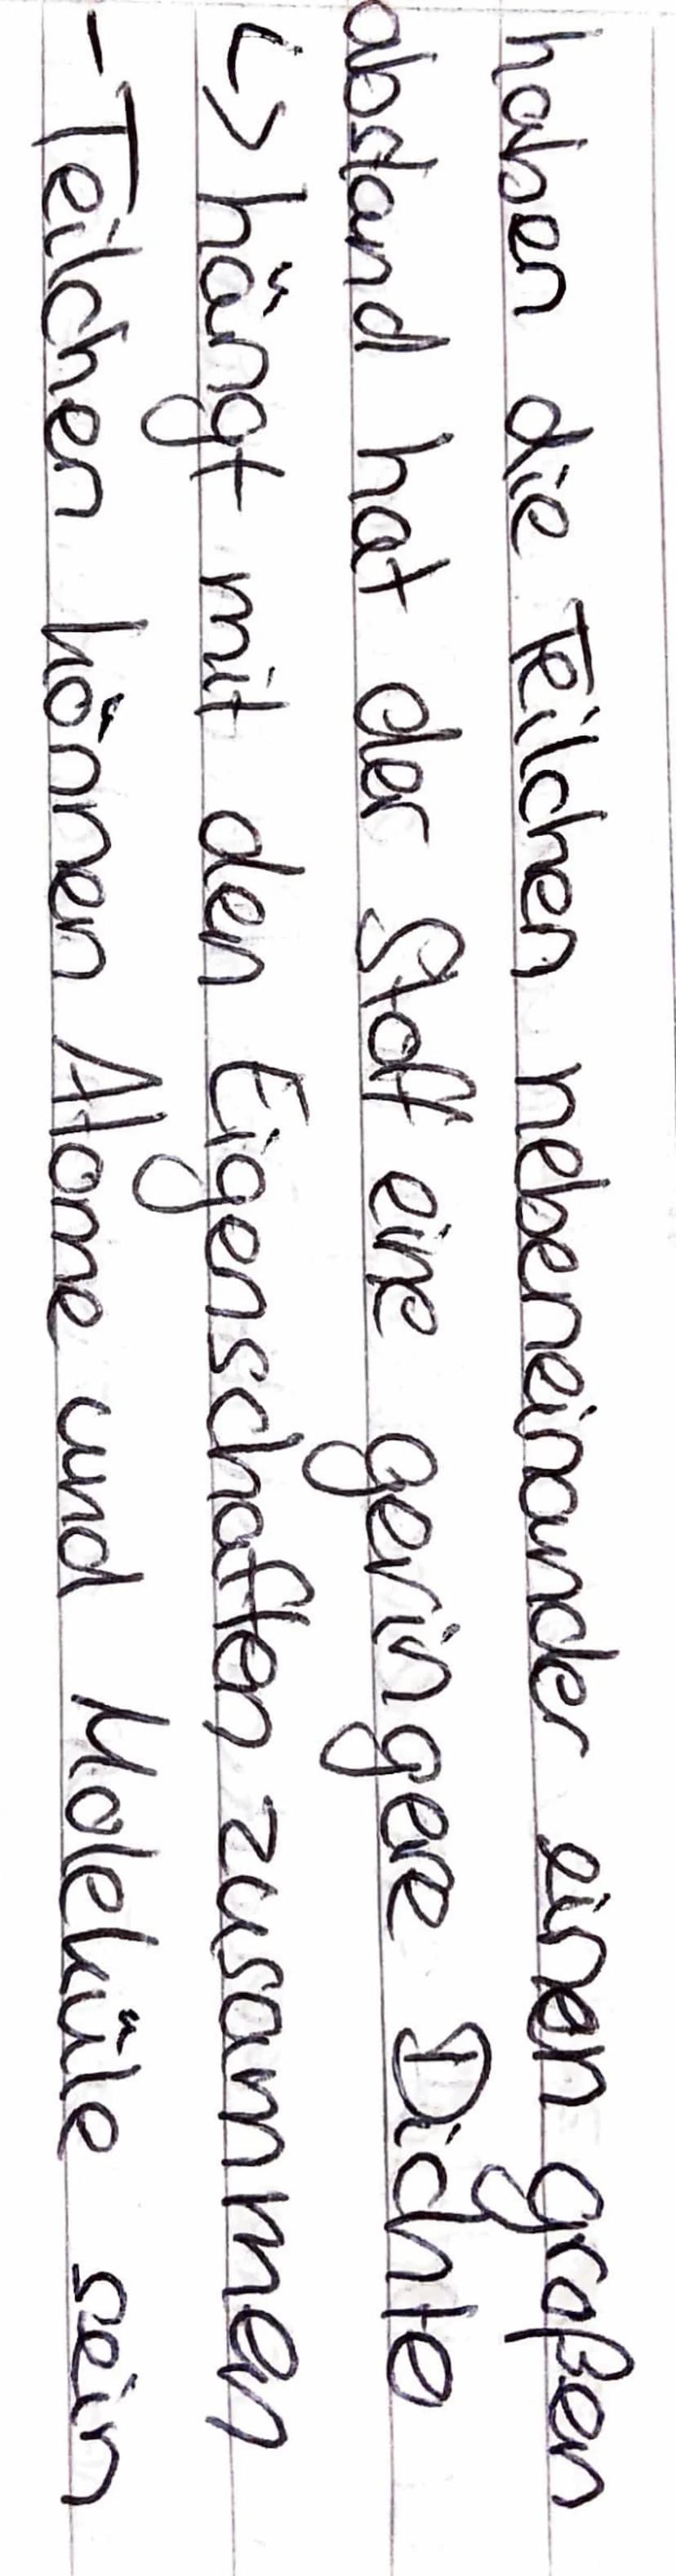 haben die Teilchen nebeneinander einen großen
abstand hat der Stoff eine geringere Dichte
↳ hängt mit den Eigenschaften zusammen
- Teilchen können Atome und Moleküle sein